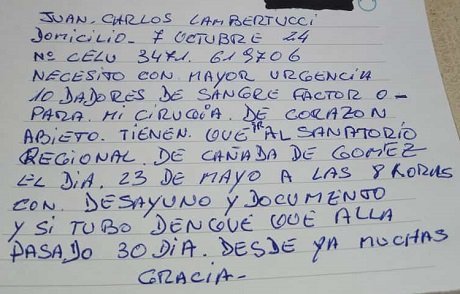 JUAN. CARLOS LAMBERTUCCI
DOMICILIO - 7 OCTUBRE 24
Nº CELU 3471. 619706
NECESITO CON MAYOR URGENCIA
10 DADORES DE SANGRE FACTOR O -
PARA. MI CIRUGIA. DE CORAZON
ABIETO. TIENEN. QUE IR AL SANATORIO
REGIONAL. DE CAÑADA DE GOMEZ
EL DIA. 23 DE MAYO A LAS 8 HORAS
CON. DESAYUNO Y DOCUMENTO
Y SI TUBO DENGUE QUE ALLA
PASADO 30 DIA. DESDE YA MUCHAS
GRACIA -